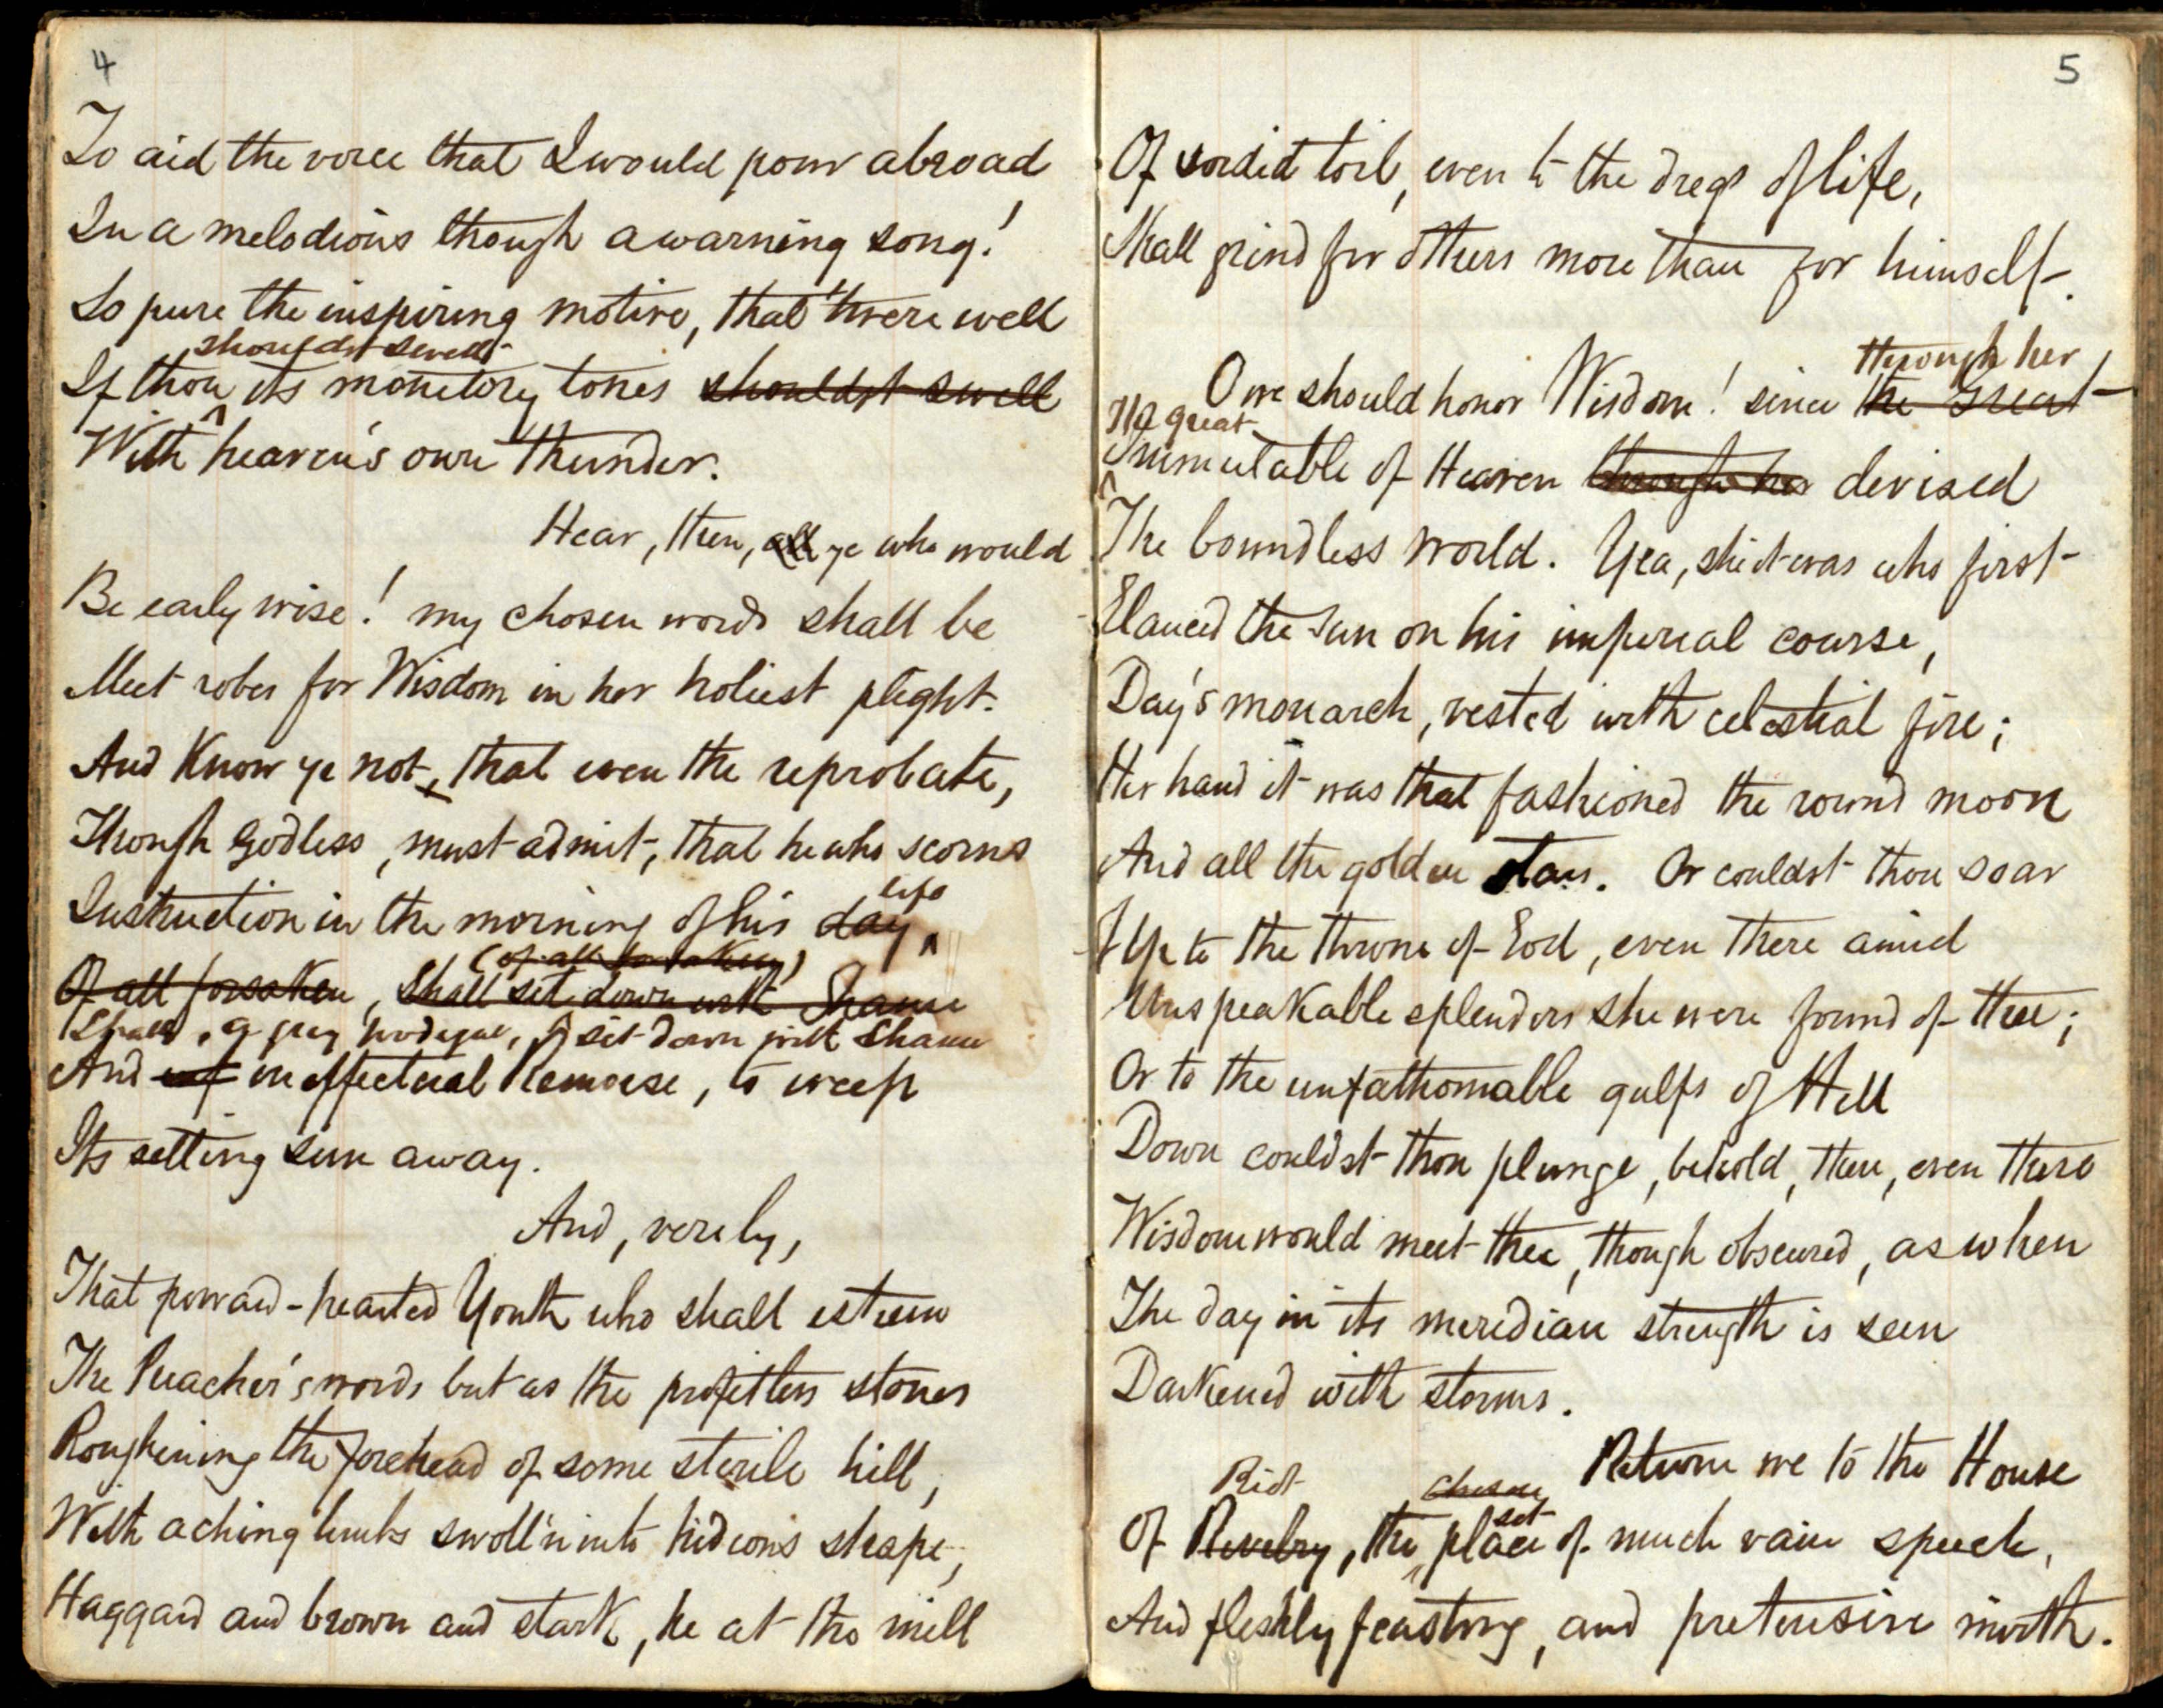 4
To aid the voice that I would pour abroad
In a melodious though a warning song!
So pure the inspiring motive, that 'twere well
shouldst swell
If thou its monitory tones shouldst swell
With heaven's own thunder.
Hear, then, all ye who would
Be early wise! my chosen words shall be
Meet robes for Wisdom in her holiest plight.
And Know ye not, that even the reprobate,
Though Godless, must admit, that he who scorns
life
Instruction in the morning of his day
(of all forsaken)
Of all forsaken, shall sit down with Shame
Shall, a grey prodigal, sit down with Shame
And inef ineffectual Remorse, to weep
Its setting sun away.
And, verily,
That froward-hearted Youth who shall esteem
The Preacher's words but as the profitless stones
Roughening the forehead of some sterile hill,
With aching limbs swoll'n into hideous shape,
Haggard and brown and stark, he at the mill
5
Of sordid toil, even to the dregs of life,
Shall grind for others more than for himself.
through her
O we should honor Wisdom! since the Great
The great
Immutable of Heaven through her devised
The boundless world. Yea, she it was who first
Elanced the Sun on his imperial course,
Day's monarch, vested with celestial fire;
Her hand it was that fashioned the round moon
And all the golden stars. Or couldst thou soar
Up to the throne of God, even there amid
Unspeakable splendors she were found of thee;
Or to the unfathomable gulfs of Hell
Down couldst thou plunge, behold, then, even there
Wisdom would meet thee, though obscured, as when
The day in its meridian strength is seen
Darkened with storms.
Return we to the House
Riot chosen
set
Of Revelry, the place of much vain speech,
And fleshly feasting, and pretensive mirth.